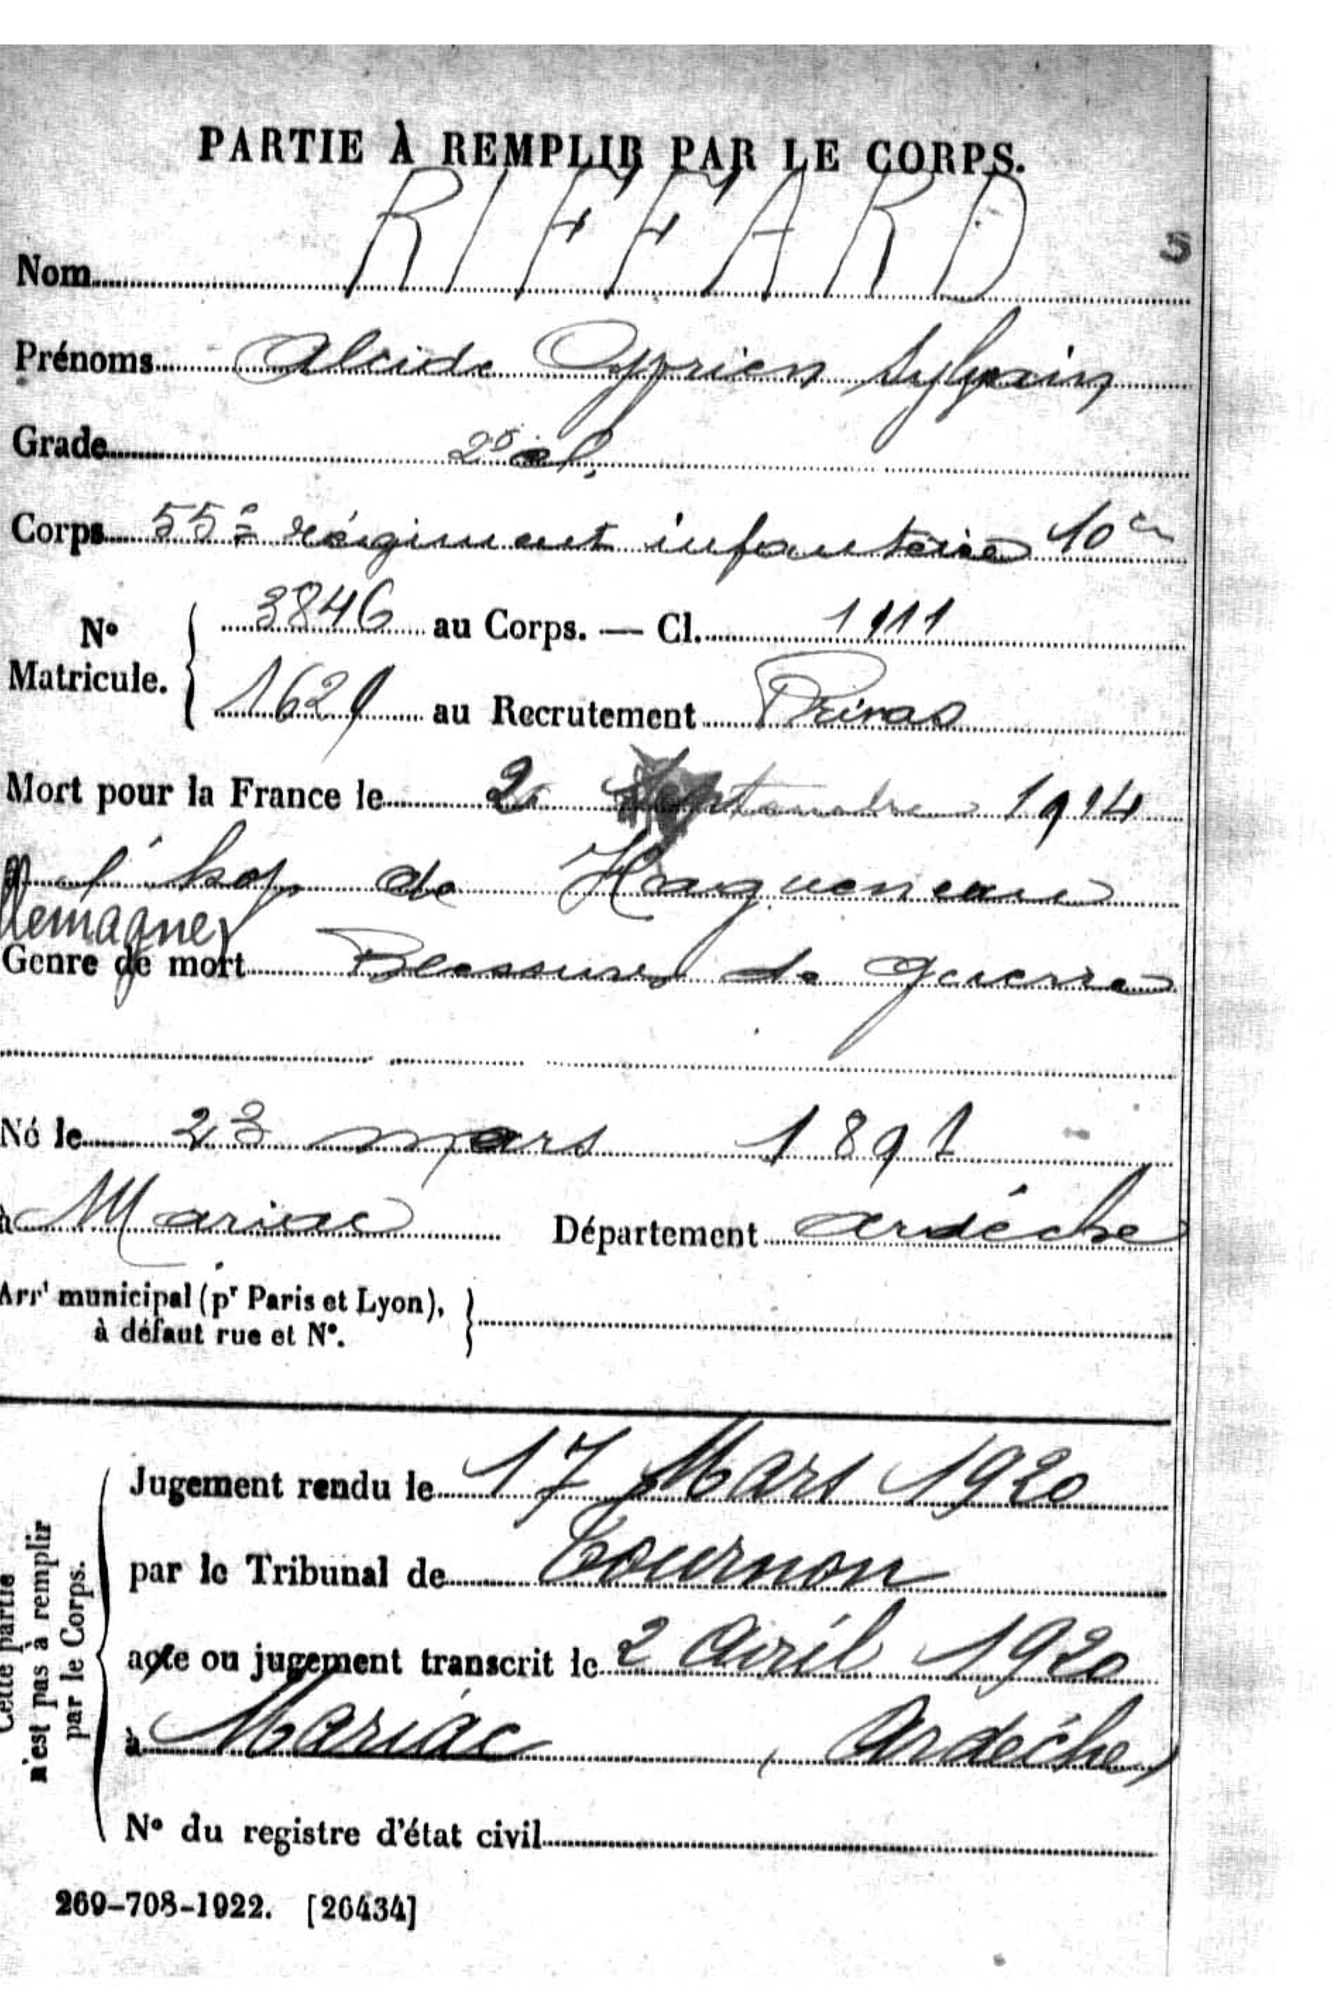 PARTIE À REMPLIR PAR LE CORPS.
RIFFARD
5
Nom
Prénoms Alcide Cyprien Sylvain
Grade 2e cl.
Corps 55e régiment infanterie 10e
No Matricule. { 3846 au Corps. — Cl. 1911
1621 au Recrutement Privas
Mort pour la France le 2 septembre 1914
à l'hop de Hagueneau
llemagne)
Genre de mort Blessures de guerre
Né le 23 mars 1891
à Mariac Département Ardèche
Arrt municipal (pr Paris et Lyon),
à défaut rue et N°. }
Cette partie
n'est pas à remplir
par le Corps.
Jugement rendu le 17 Mars 1920
par le Tribunal de Tournon
acte ou jugement transcrit le 2 Avril 1920
à Mariac (Ardèche)
N° du registre d'état civil
269-708-1922. [26434]